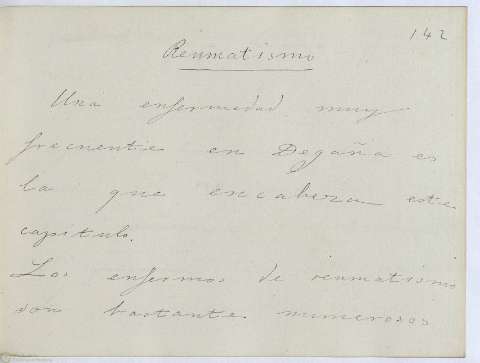 142
Reumatismo
Una enfermedad muy
frecuente en Degaña es
la que encabeza este
capitulo.
Los enfermos de reumatismo
son bastante numerosos